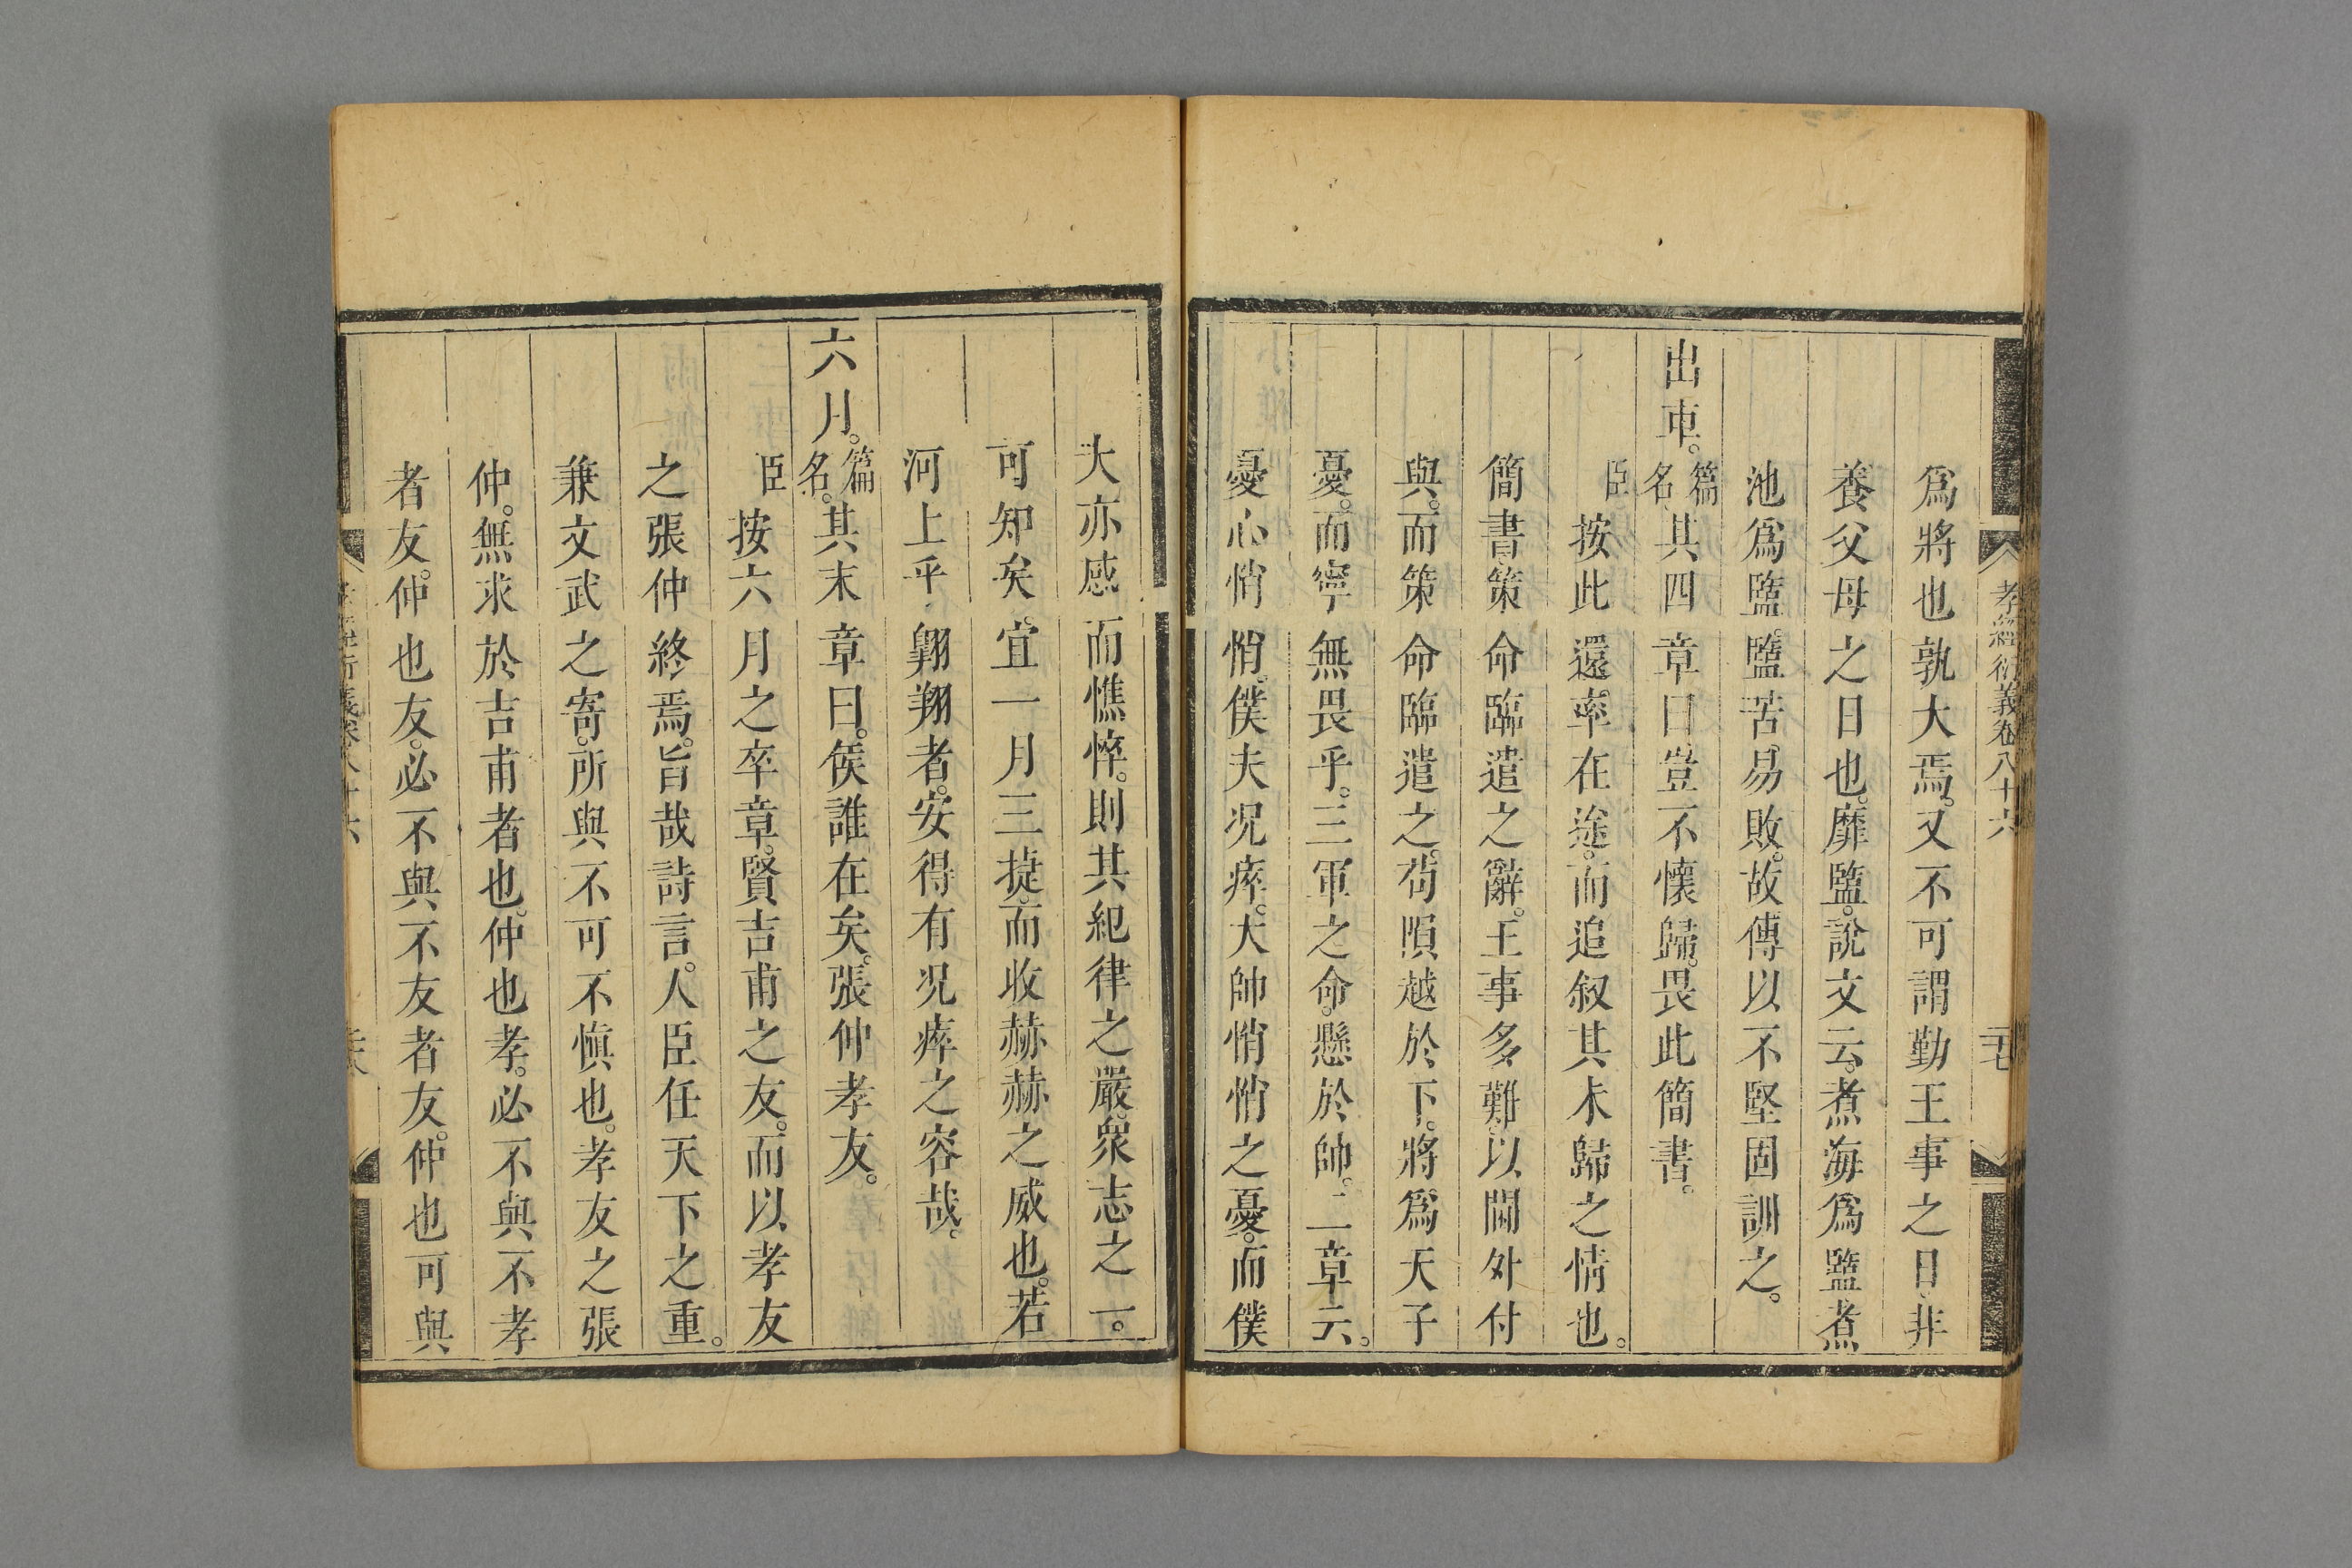 孝經衍義卷八十六
爲將也孰大焉。又不可謂勤王事之日、非
養父母之日也。靡盬。說文云。煮海爲盬煮
池爲盬。盬苦。易敗。故傳以不堅固訓之。
出車。篇名。其四章曰豈不懷歸。畏此簡書。
臣按此還率在途。而追叙其未歸之情也。
簡書。策命臨遣之辭。王事多難。以閫外付
與。而策命臨遣之。苟隕越於下。將爲天子
憂。而寧無畏乎。三軍之命。懸於帥。二章云。
憂心悄悄。僕夫况瘁。大帥悄悄之憂。而僕
大亦感而憔悴。則其紀律之嚴。衆志之一。
可知矣。宜一月三捷。而收赫赫之威也。若
河上乎翱翔者。安得有况瘁之容哉。
六月。篇名。其末章曰。侯誰在矣。張仲孝友。
臣按六月之卒章。賢吉甫之友。而以孝友
之張仲終焉。旨哉詩言。人臣任天下之重。
兼文武之寄。所與不可不愼也。孝友之張
仲。無求於吉甫者也。仲也孝。必不與不孝
者友。仲也友。必不與不友者友。仲也可與